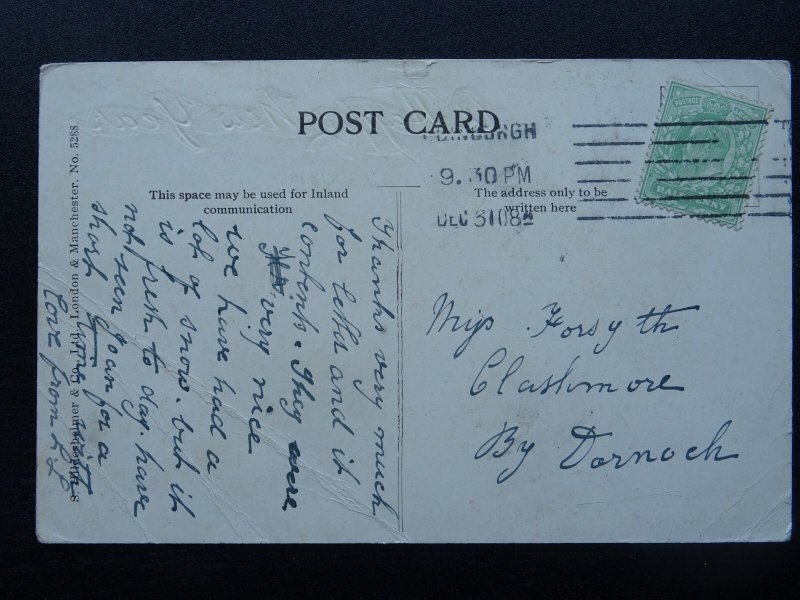 POST CARD
EDINBURGH
9.30 PM
DEC 31 08
This space may be used for Inland
communication
The address only to be
written here
Thanks very much
for letter and it
contents. They were
very nice
we have had a
lot of snow. but it
is fresh to day. have
not seen Joan for a
short time with
Love from
Miss Forsyth
Clashmore
By Dornoch
& Co. Ltd. London & Manchester. No. 5288
New Year
POSTAGE